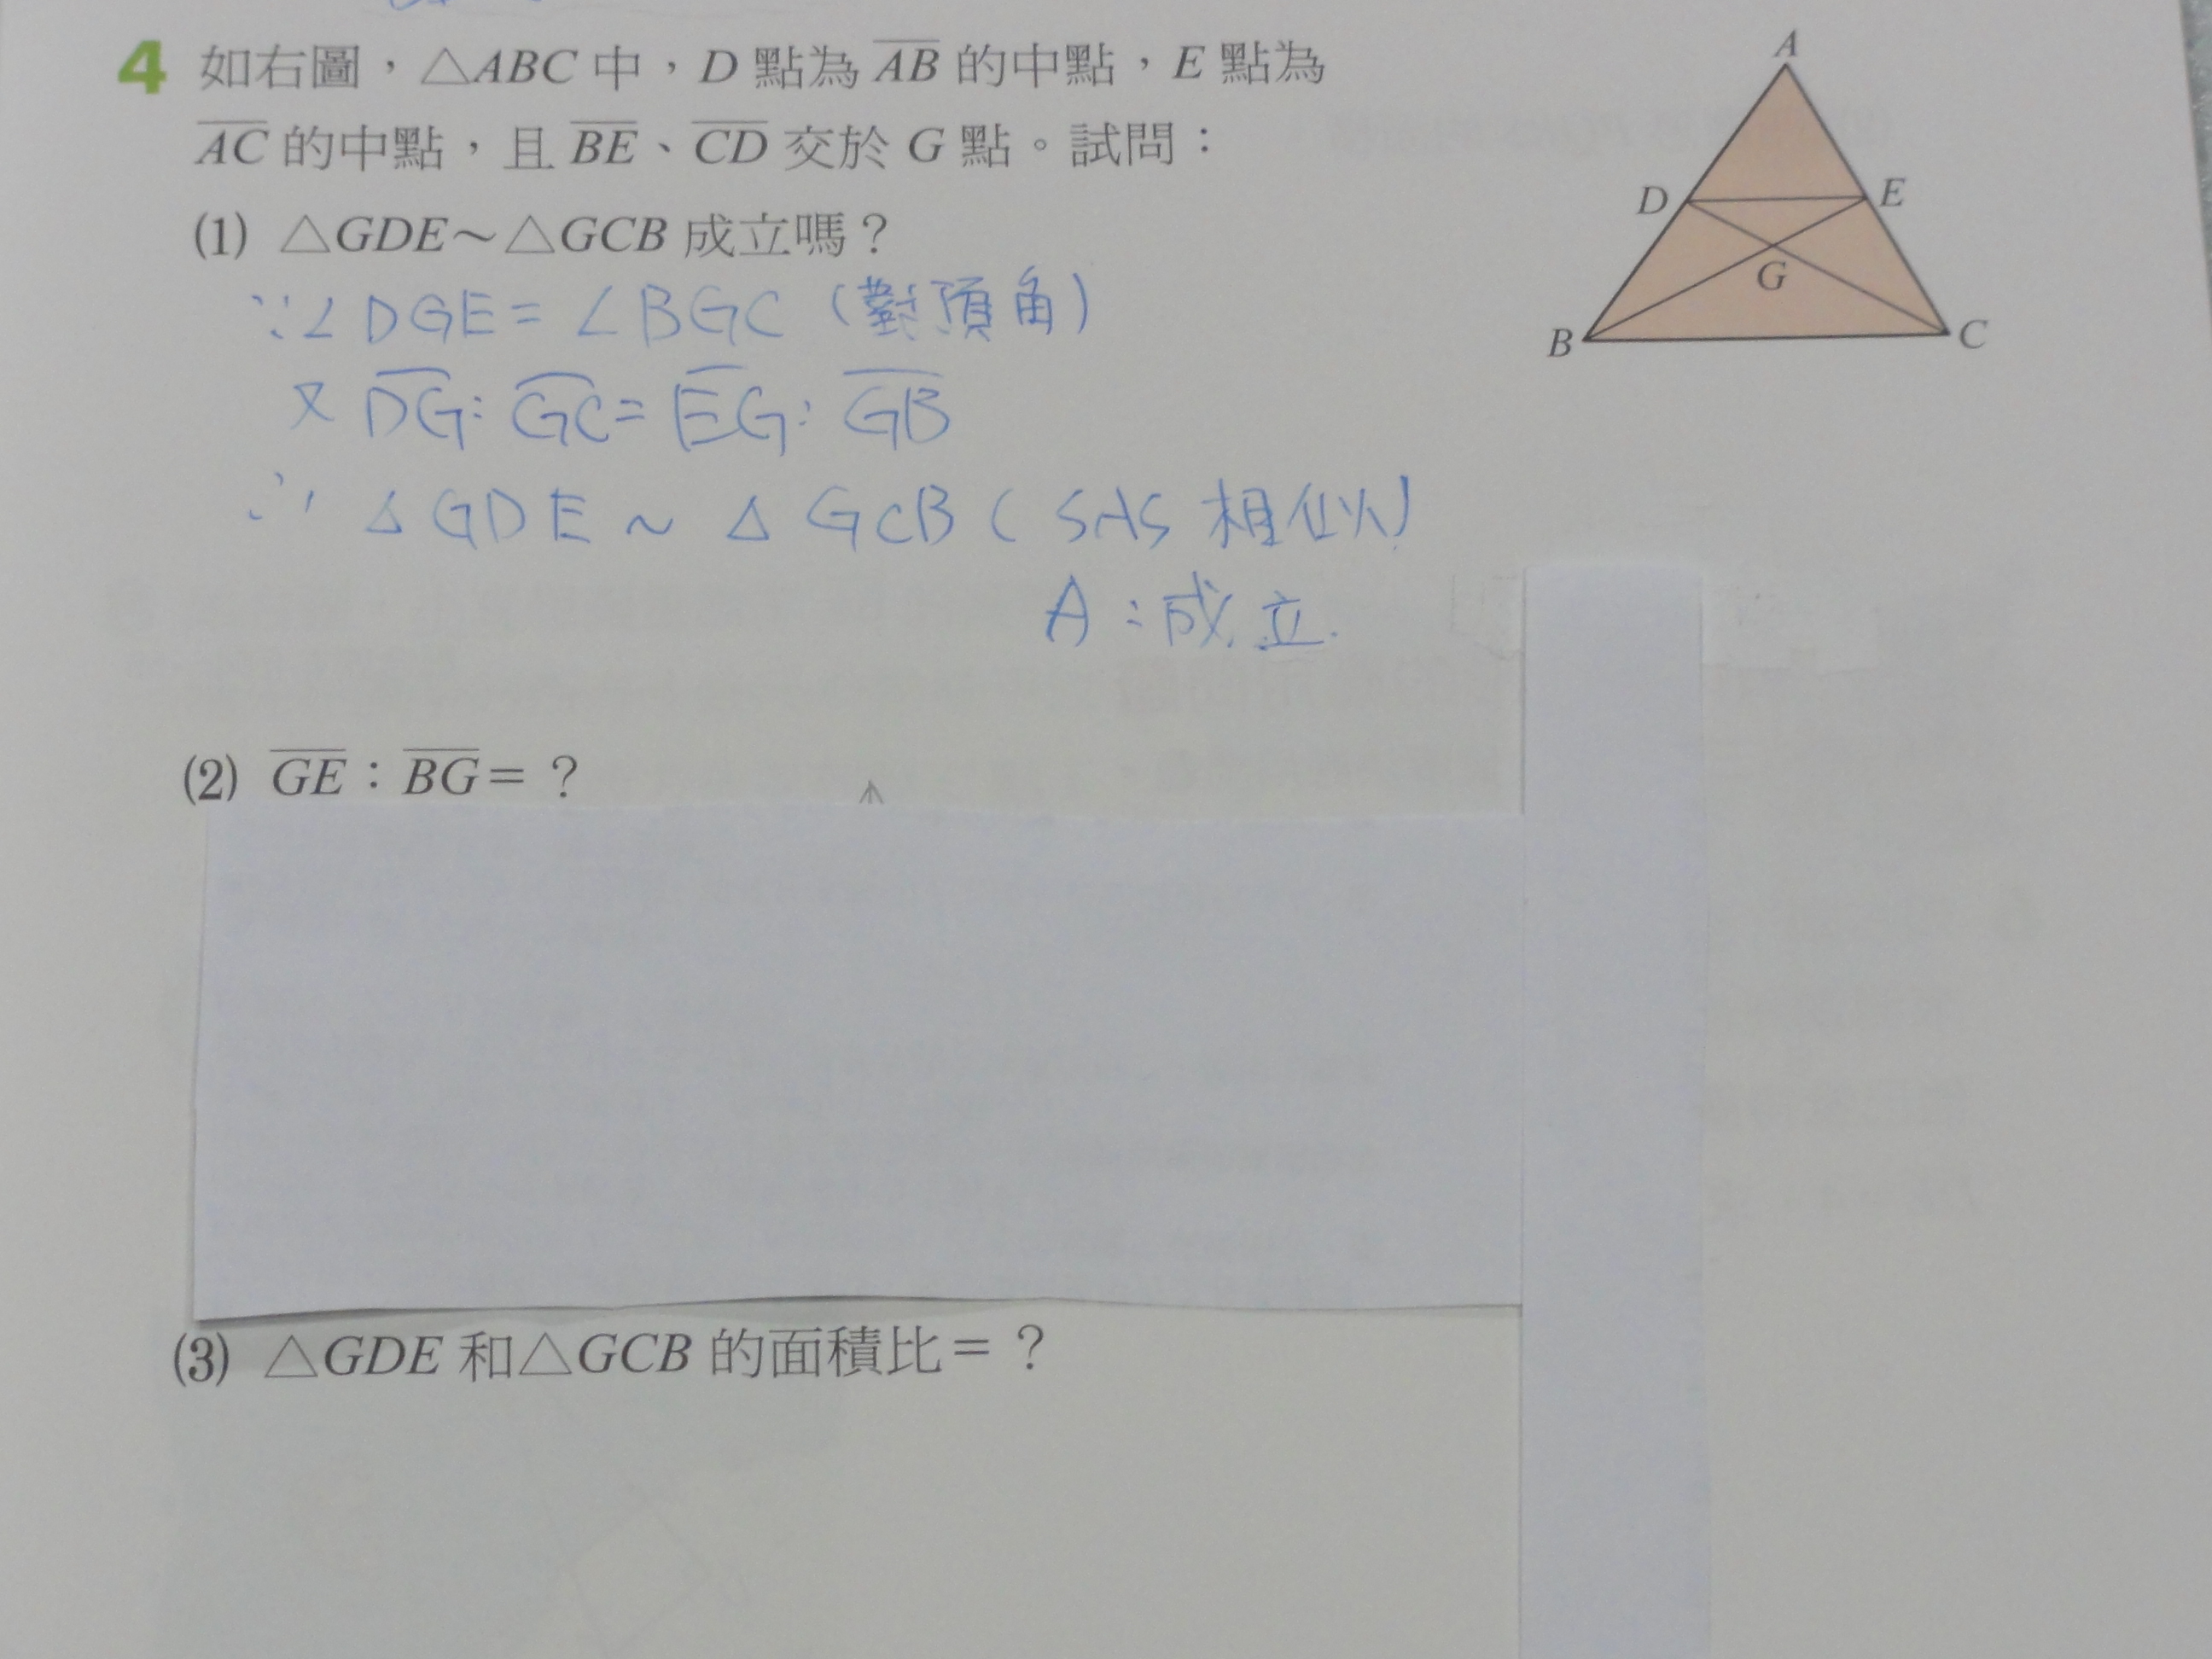 4 如右圖，△ABC 中，D 點為 AB 的中點，E 點為
AC 的中點，且 BE、CD 交於 G 點。試問：
(1) △GDE～△GCB 成立嗎？
∵∠DGE=∠BGC (對頂角)
又 DG:GC=EG:GB
∴ △GDE ~ △GCB (SAS 相似)
A:成立.
(2) GE：BG=？
(3) △GDE 和△GCB 的面積比=？
A
D
E
G
B
C